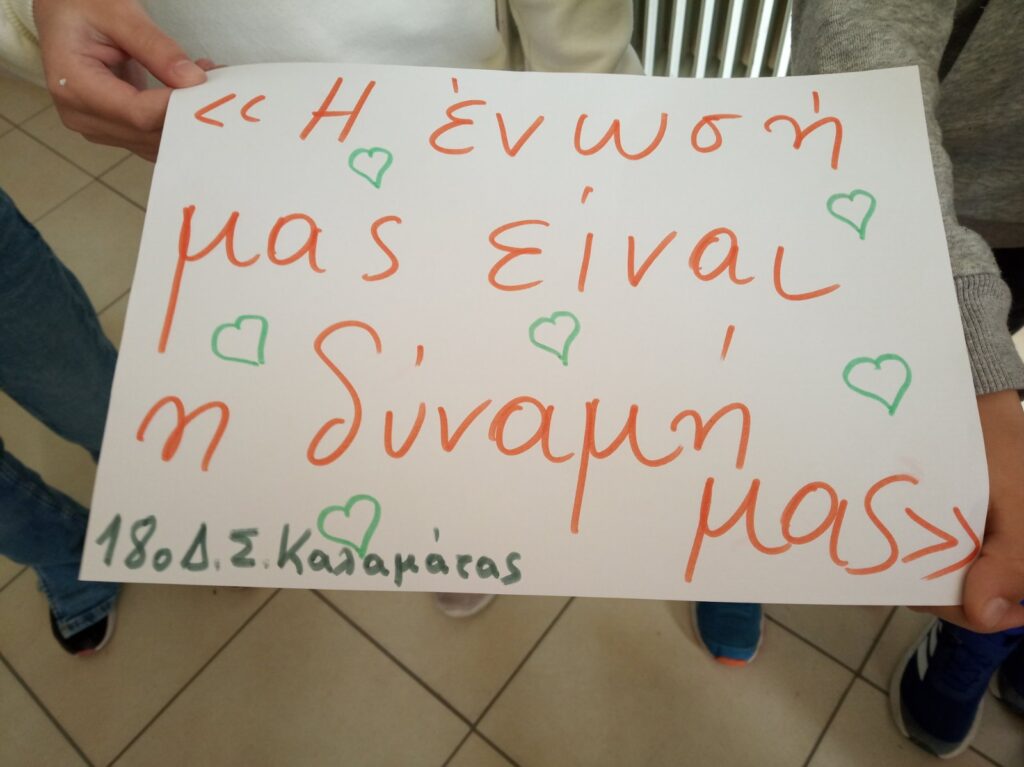 « Η ένωσή
μας είναι
η δύναμή
μας»
18ο Δ. Σ. Καλαμάτας